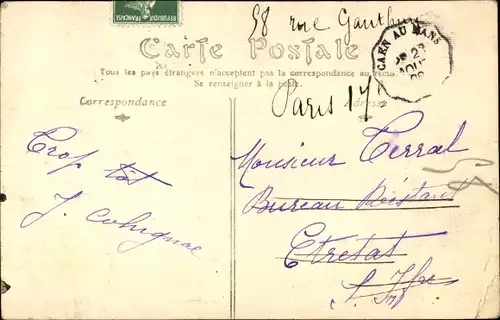 FRANÇAISE
58 rue Gauthey
Carte Postale
CAEN AU MANS
23
AOUT
09
Tous les pays étrangers n'acceptent pas la correspondance au verso
Se renseigner à la poste.
Paris 17e
Correspondance
Adresse
Trop tôt
J. Cohignac
Monsieur Terral
Bureau Restant
Etretat
S. Infre